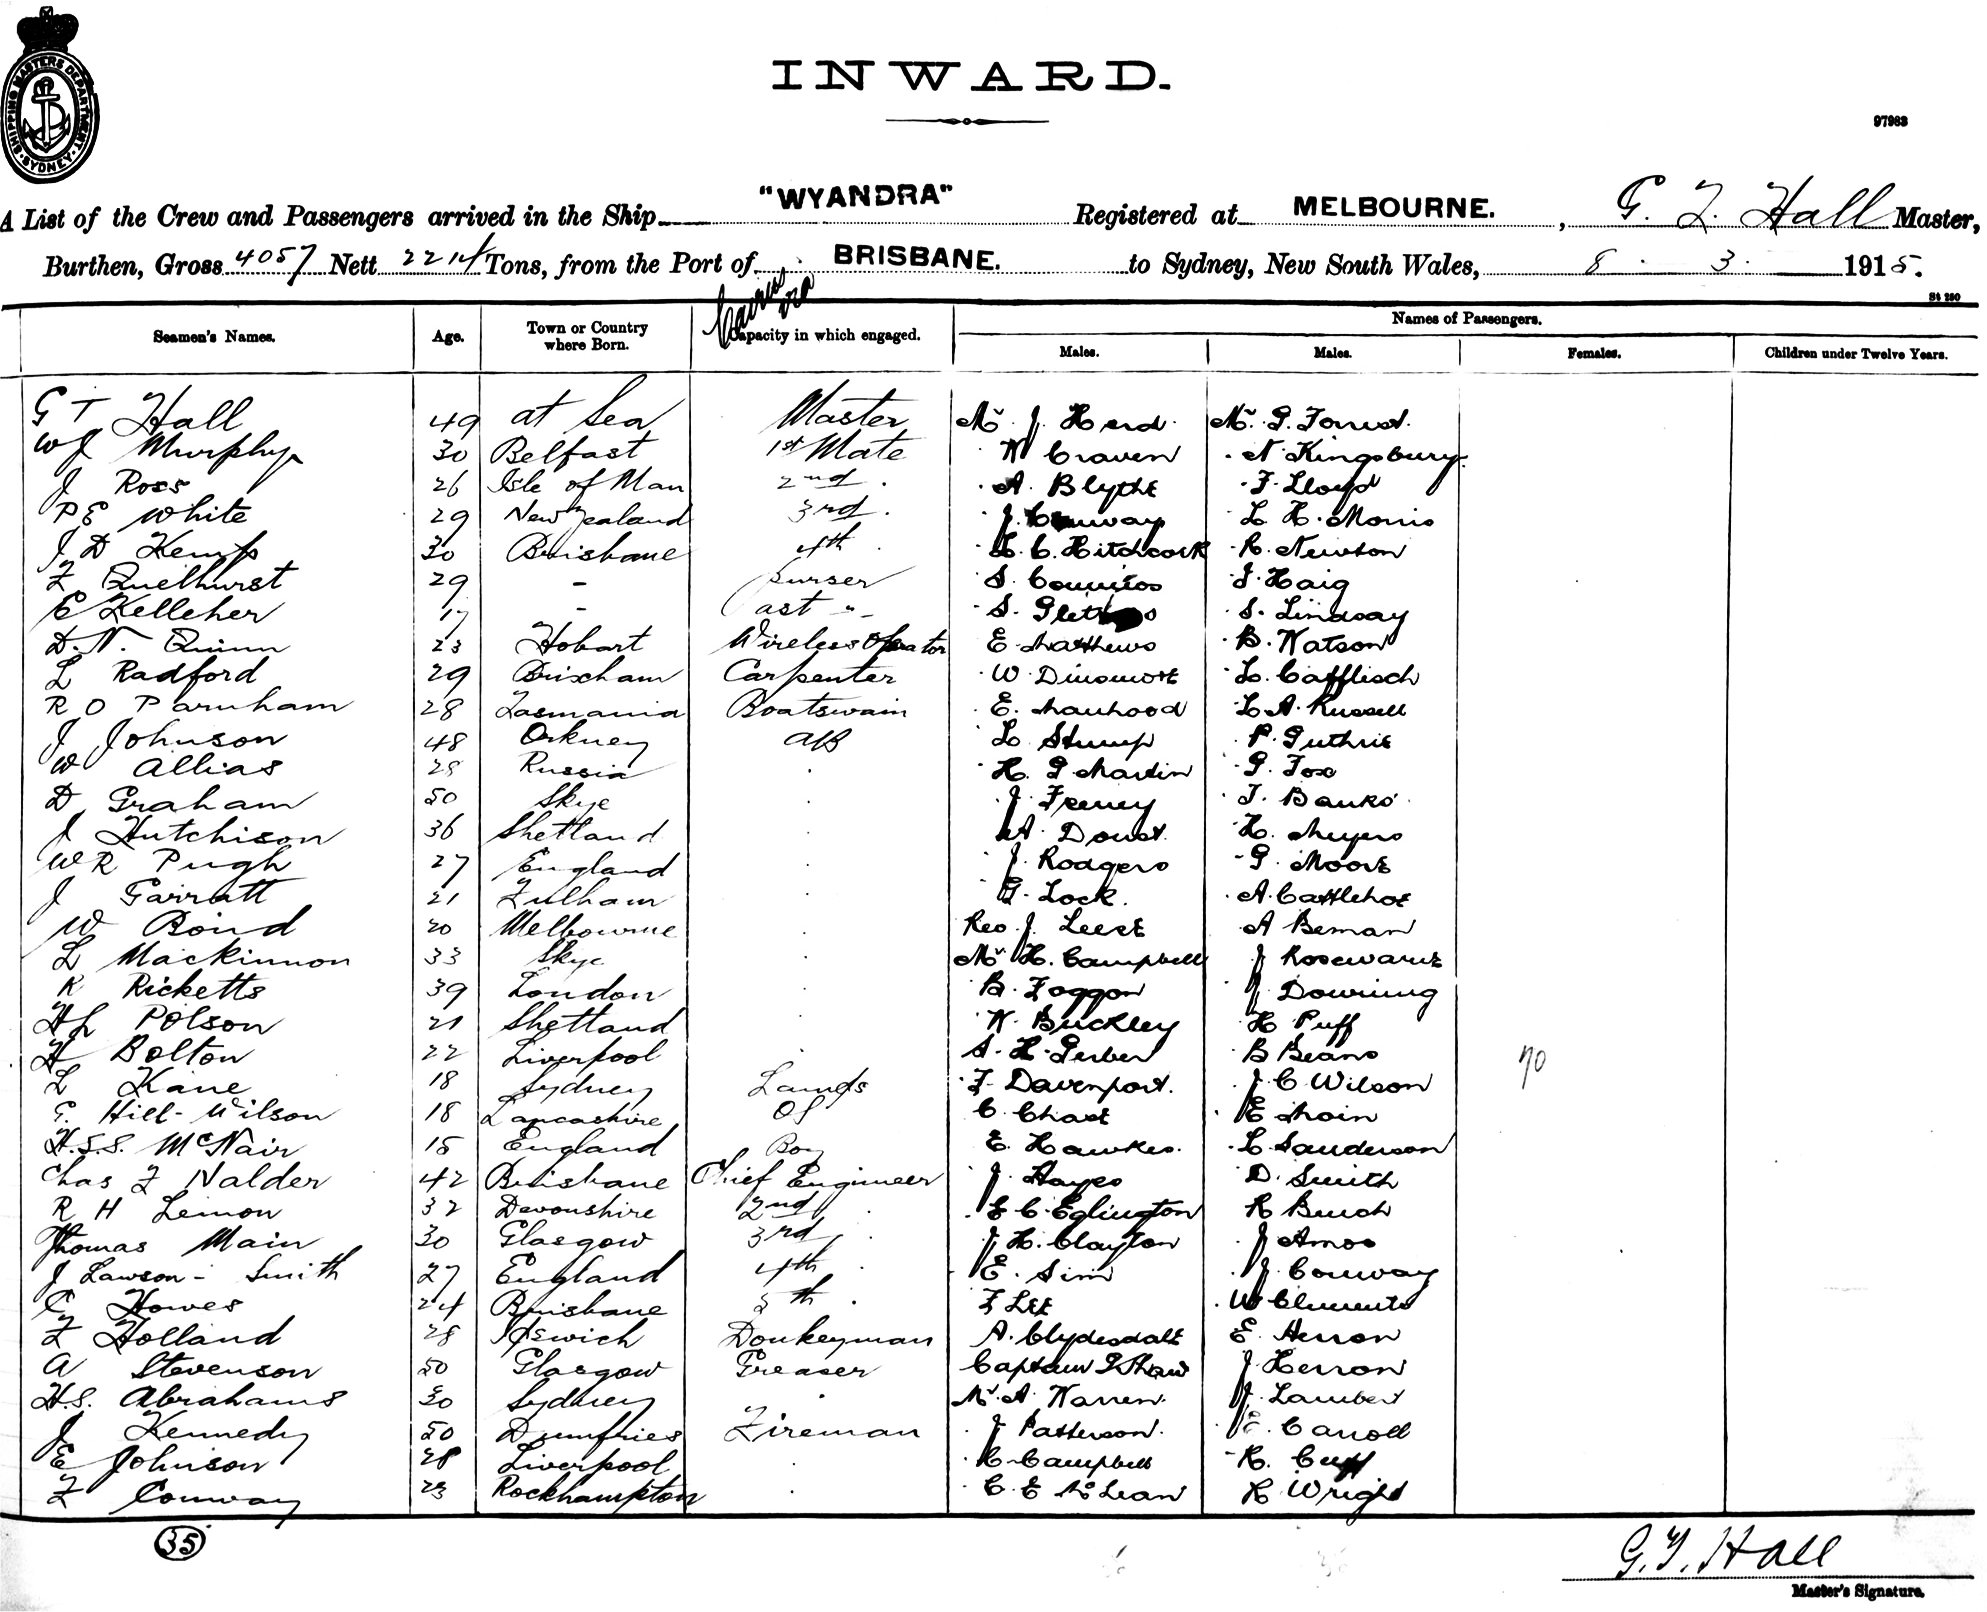 SHIPPING MASTERS DEPARTMENT · SYDNEY ·
INWARD.
97983
A List of the Crew and Passengers arrived in the Ship "WYANDRA" Registered at MELBOURNE. , G. T. Hall Master,
Burthen, Gross 4057 Nett 2214 Tons, from the Port of BRISBANE. to Sydney, New South Wales, 8 . 3 . 1915.
Cairns
St 250
Seamen's Names. Age. Town or Country where Born. Capacity in which engaged. Names of Passengers.
Males. Males. Females. Children under Twelve Years.
G T Hall 49 at Sea Master Mr. J. Herd. Mr. G. Forrest.
W J Murphy 30 Belfast 1st Mate W Craven N Kingsbury
J Ross 26 Isle of Man 2nd . A. Blythe F. Lloyd
P E White 29 New Zealand 3rd . J. Conway L. H. Morris
J D Kemp 30 Brisbane 4th . L. C. Hitchcock R. Newton
F Quelhurst 29 - Purser S. J. Haig
E Kelleher 17 - asst -"- S. S. Lindsay
D. N. Quinn 23 Hobart Wireless Operator E Mathews B. Watson
L Radford 29 Brixham Carpenter W Dinsmore L. Cafflisch
R O Parnham 28 Tasmania Boatswain E. Manhood L A Russell
J Johnson 48 Orkney AB L Stump P. Guthrie
W Allias 28 Russia . H. G Martin G. Fox
D Graham 50 Skye . J. Freney T. Banks
J Hutchison 36 Shetland . A. Doust. H. Meyers
W R Pugh 27 England . J. Rodgers G. Moore
J Garratt 21 Fulham . G. Lock. A. Cattlehoe
W Bond 20 Melbourne . Rev. J. Leese A Beman
L Mackinnon 33 Skye . Mr H. Campbell J Rosewarne
R Ricketts 39 London . B. Foggon J Downing
H L Polson 21 Shetland . W. Buckley H Puff
H Bolton 22 Liverpool . S. H. Gerber B Beans
L Kane 18 Sydney Lamps F Davenport. J C Wilson no
G. Hill-Wilson 18 Lancashire OS C Chase E Moin
H.S.S. McNair 15 England Boy E. Hawkes. L Sanderson
Chas F Nalder 42 Brisbane Chief Engineer J Hayes D. Smith
R H Lemon 32 Devonshire 2nd . E C. Eglington R Burch
Thomas Main 30 Glasgow 3rd . J. H. Clayton J Amos
J Lawson-Smith 27 England 4th . E. Sim J Conway
C Howes 24 Brisbane 5th . F Lee W Clements
F Holland 28 Ipswich Donkeyman A. Clydesdale E. Herron
A Stevenson 50 Glasgow Greaser Captain G Shaw J Herron
H.S. Abrahams 30 Sydney . Mr. A. Warren. J. Lambert
J Kennedy 50 Dumfries Fireman J Patterson. E. Carroll
E Johnson 28 Liverpool . C. Campbell R. Cuff
F Conway 23 Rockhampton . C. E McLean R Wright
35
G. T. Hall
Master's Signature.